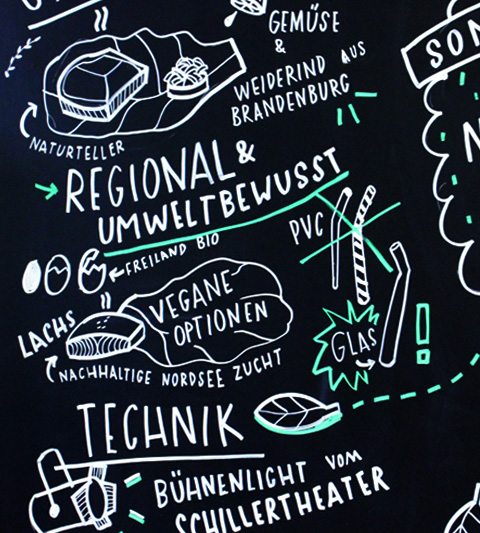 GEMÜSE
&
WEIDERIND AUS
BRANDENBURG
NATURTELLER
REGIONAL &
UMWELTBEWUSST
PVC
FREILAND BIO
LACHS
VEGANE
OPTIONEN
GLAS
NACHHALTIGE NORDSEE ZUCHT
TECHNIK
BÜHNENLICHT VOM
SCHILLERTHEATER
SON